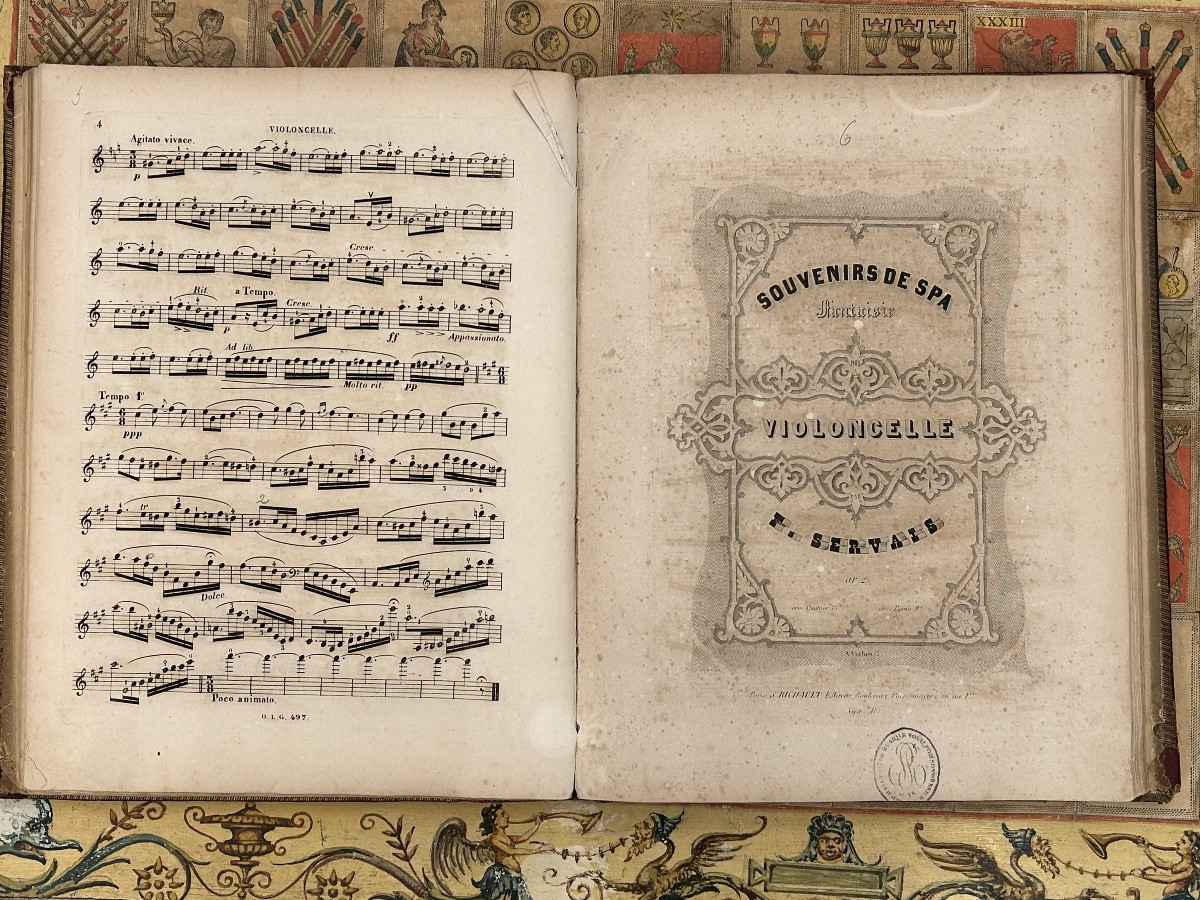 XXXIII
5
4
VIOLONCELLE.
Agitato vivace.
p
Cresc.
Rit. a Tempo. Cresc.
p ff Appassionato.
Ad lib.
Molto rit. pp
Tempo 1º
ppp
3 0 4
tr 2
Dolce.
Poco animato.
O. L. G. 497.
6
SOUVENIRS DE SPA
Fantaisie
VIOLONCELLE
PAR
F. SERVAIS
OP. 2
A. Vialon
S. RICHAULT Editeur Boulevart Poissonnière